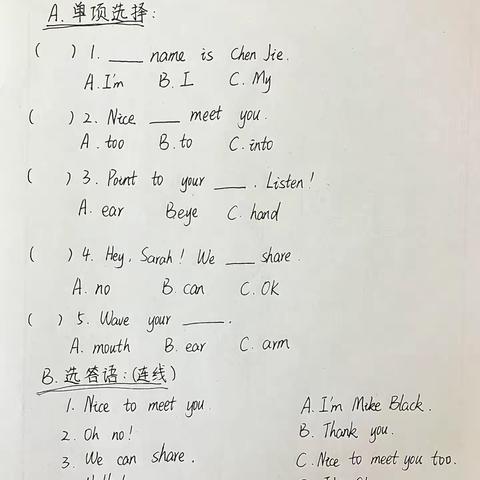 A. 单项选择:
( ) 1. ____ name is Chen Jie.
A. I'm B. I C. My
( ) 2. Nice ____ meet you.
A. too B. to C. into
( ) 3. Point to your ____. Listen!
A. ear B. eye C. hand
( ) 4. Hey, Sarah! We ____ share.
A. no B. can C. OK
( ) 5. Wave your ____.
A. mouth B. ear C. arm
B. 选答语:(连线)
1. Nice to meet you. A. I'm Mike Black.
2. Oh no! B. Thank you.
3. We can share. C. Nice to meet you too.